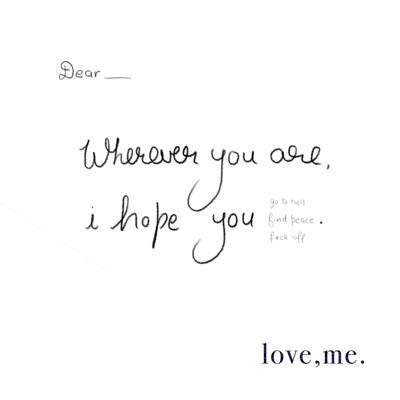 Dear ___
Wherever you are,
go to hell
i hope you find peace.
f*ck off
love,me.